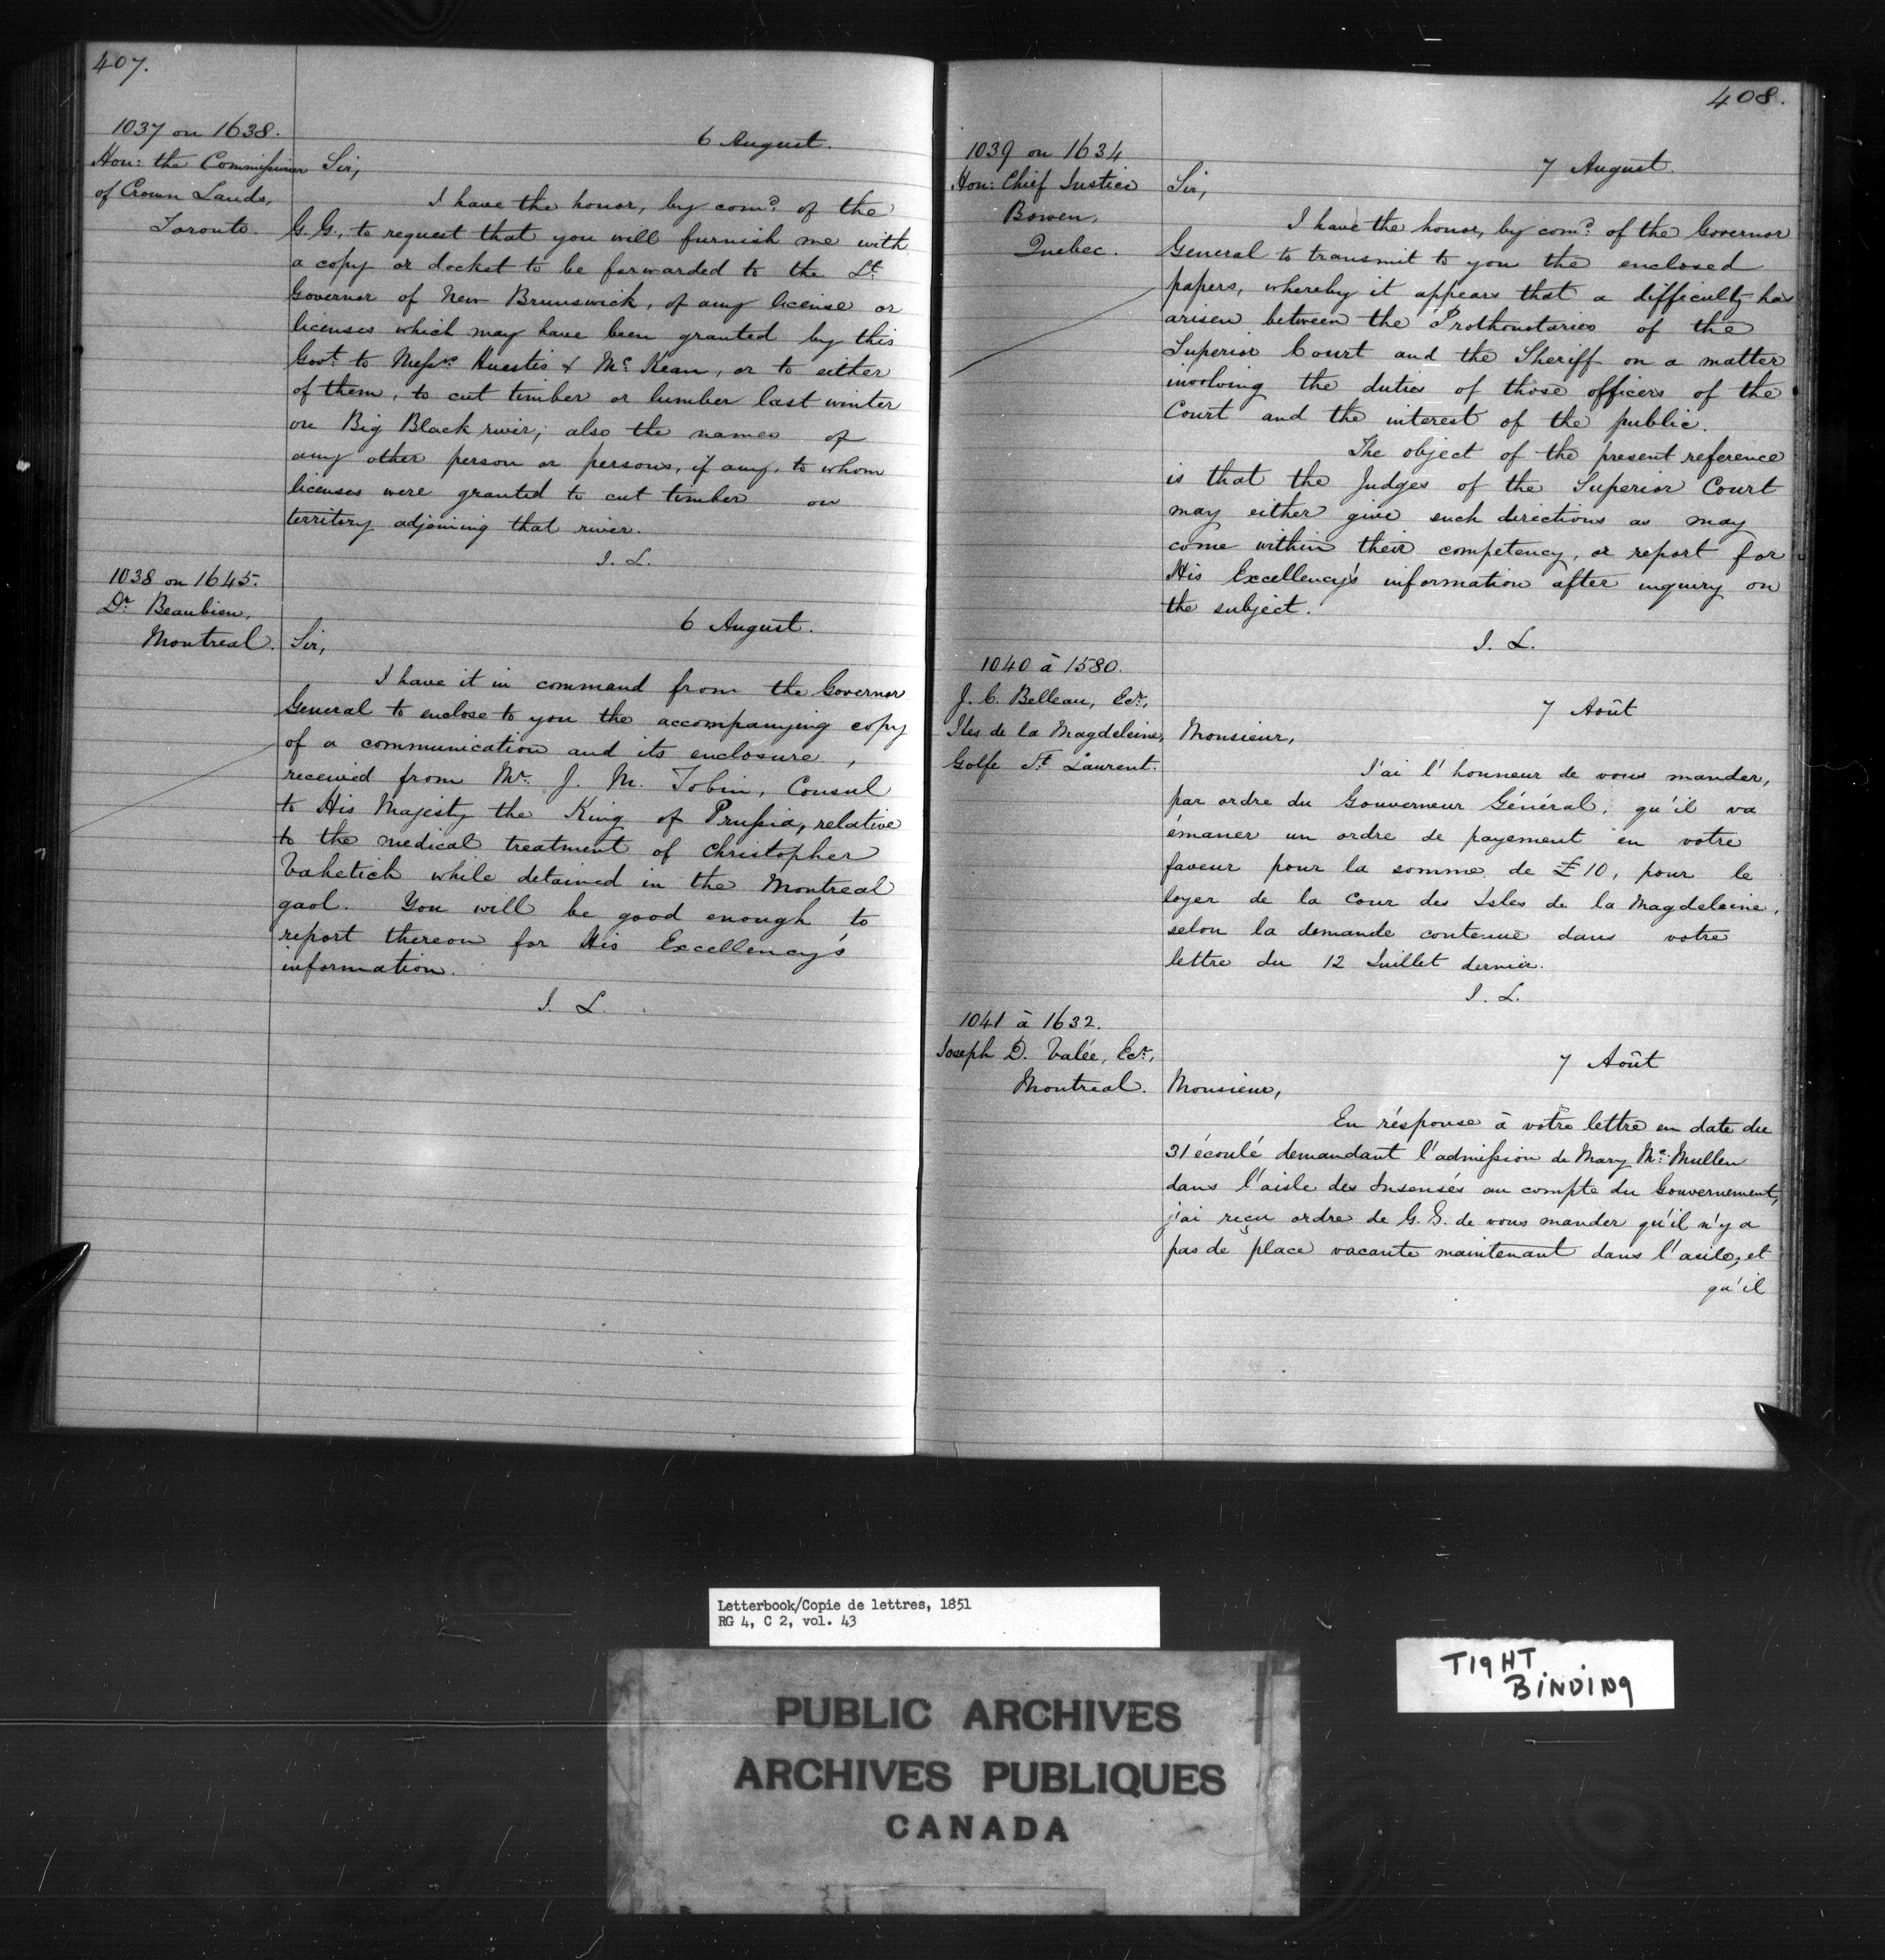 407.
1037 on 1638.
Hon: the Commissioner
of Crown Lands,
Toronto.
6 August.
Sir,
I have the honor, by comd. of the
G. G., to request that you will furnish me with
a copy or docket to be forwarded to the Lt.
Governor of New Brunswick, of any license or
licenses which may have been granted by this
Govt. to Messrs. Huestis & Mc. Kean, or to either
of them, to cut timber or lumber last winter
on Big Black river; also the names of
any other person or persons, if any, to whom
licenses were granted to cut timber on
territory adjoining that river.
J. L.
1038 on 1645.
Dr. Beaubien,
Montreal.
6 August.
Sir,
I have it in command from the Governor
General to enclose to you the accompanying copy
of a communication and its enclosure,
received from Mr. J. M. Tobin, Consul
to His Majesty the King of Prussia, relative
to the medical treatment of Christopher
Vahetich while detained in the Montreal
gaol. You will be good enough to
report thereon for His Excellency's
information.
J. L.
408.
1039 on 1634
Hon: Chief Justice
Bowen,
Quebec.
7 August.
Sir,
I have the honor, by comd. of the Governor
General to transmit to you the enclosed
papers, whereby it appears that a difficulty has
arisen between the Prothonotaries of the
Superior Court and the Sheriff on a matter
involving the duties of those officers of the
Court and the interest of the public.
The object of the present reference
is that the Judges of the Superior Court
may either give such directions as may
come within their competency, or report for
His Excellency's information after inquiry on
the subject.
J. L.
1040 à 1580.
J. C. Belleau, Ecr.,
Iles de la Magdeleine,
Golfe St. Laurent.
7 Août
Monsieur,
J'ai l'honneur de vous mander,
par ordre du Gouverneur Général, qu'il va
émaner un ordre de payement en votre
faveur pour la somme de £10, pour le
loyer de la Cour des Isles de la Magdeleine,
selon la demande contenue dans votre
lettre du 12 Juillet dernier.
J. L.
1041 à 1632.
Joseph D. Valée, Ecr.,
Montreal.
7 Août
Monsieur,
En réponse à votre lettre en date du
31 écoulé demandant l'admission de Mary Mc. Mullen
dans l'aisle des Insensés au compte du Gouvernement,
j'ai reçu ordre de G. G. de vous mander qu'il n'y a
pas de place vacante maintenant dans l'asile, et
qu'il
Letterbook/Copie de lettres, 1851
RG 4, C 2, vol. 43
TIGHT
BINDING
PUBLIC ARCHIVES
ARCHIVES PUBLIQUES
CANADA